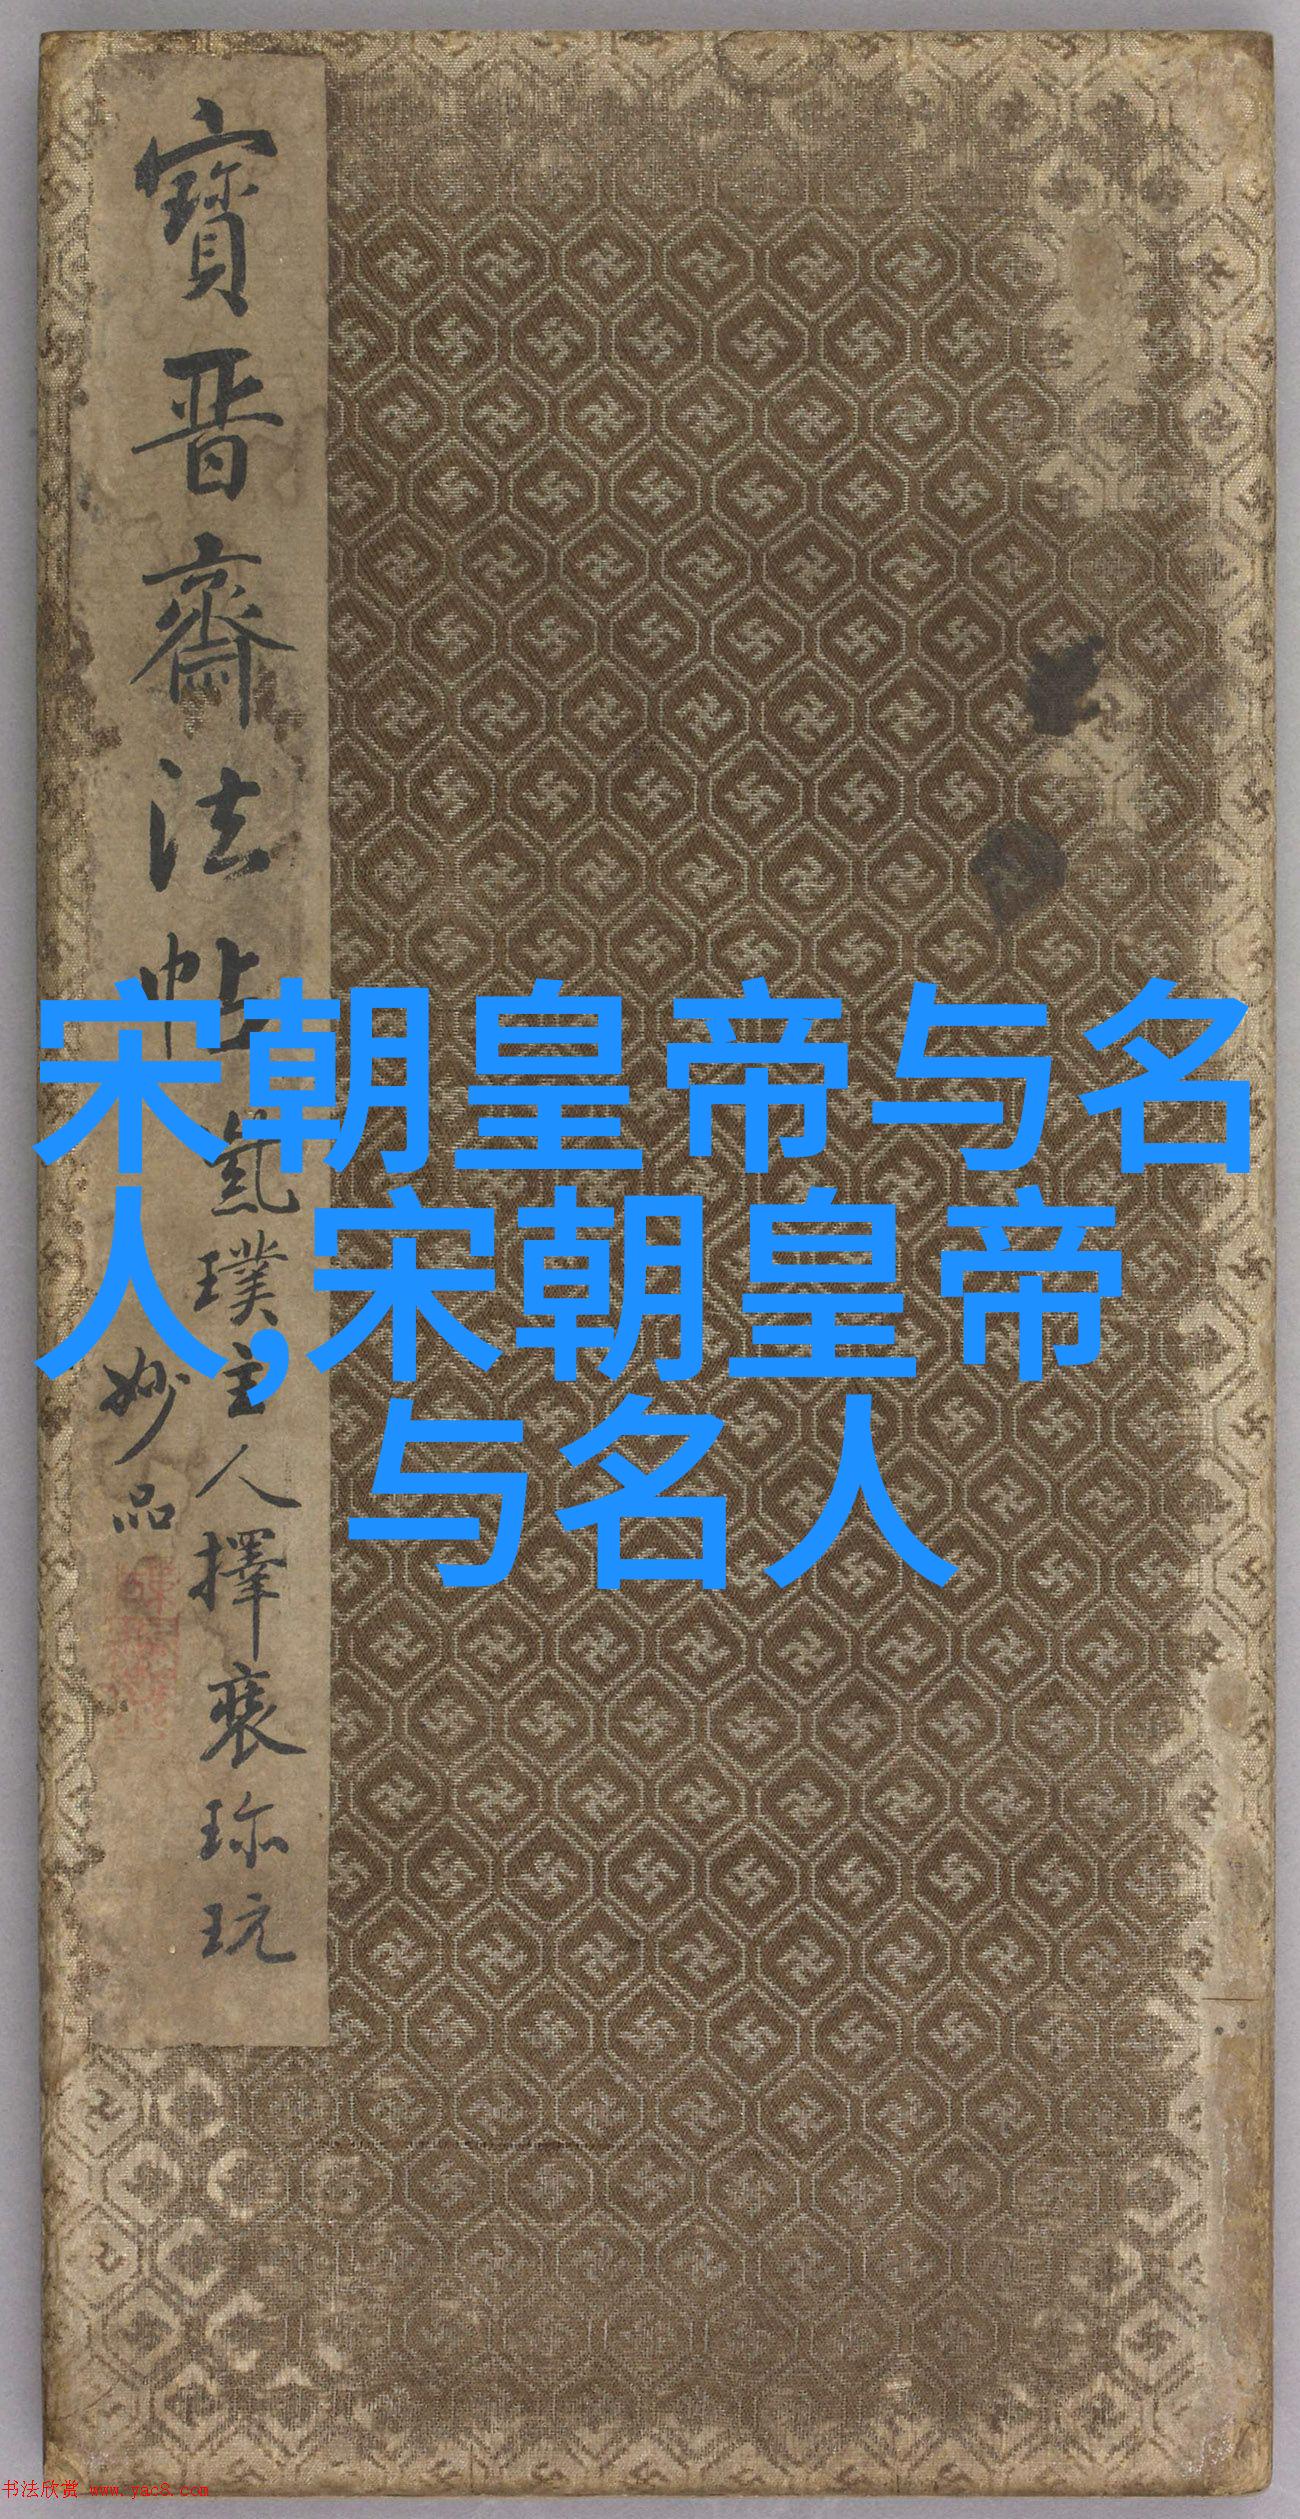 寳晋齋法帖
氲璞主人擇裒珎玩
妙品
宋朝皇帝与名
人,宋朝皇帝
与名人
书法欣赏 www.yac8.com